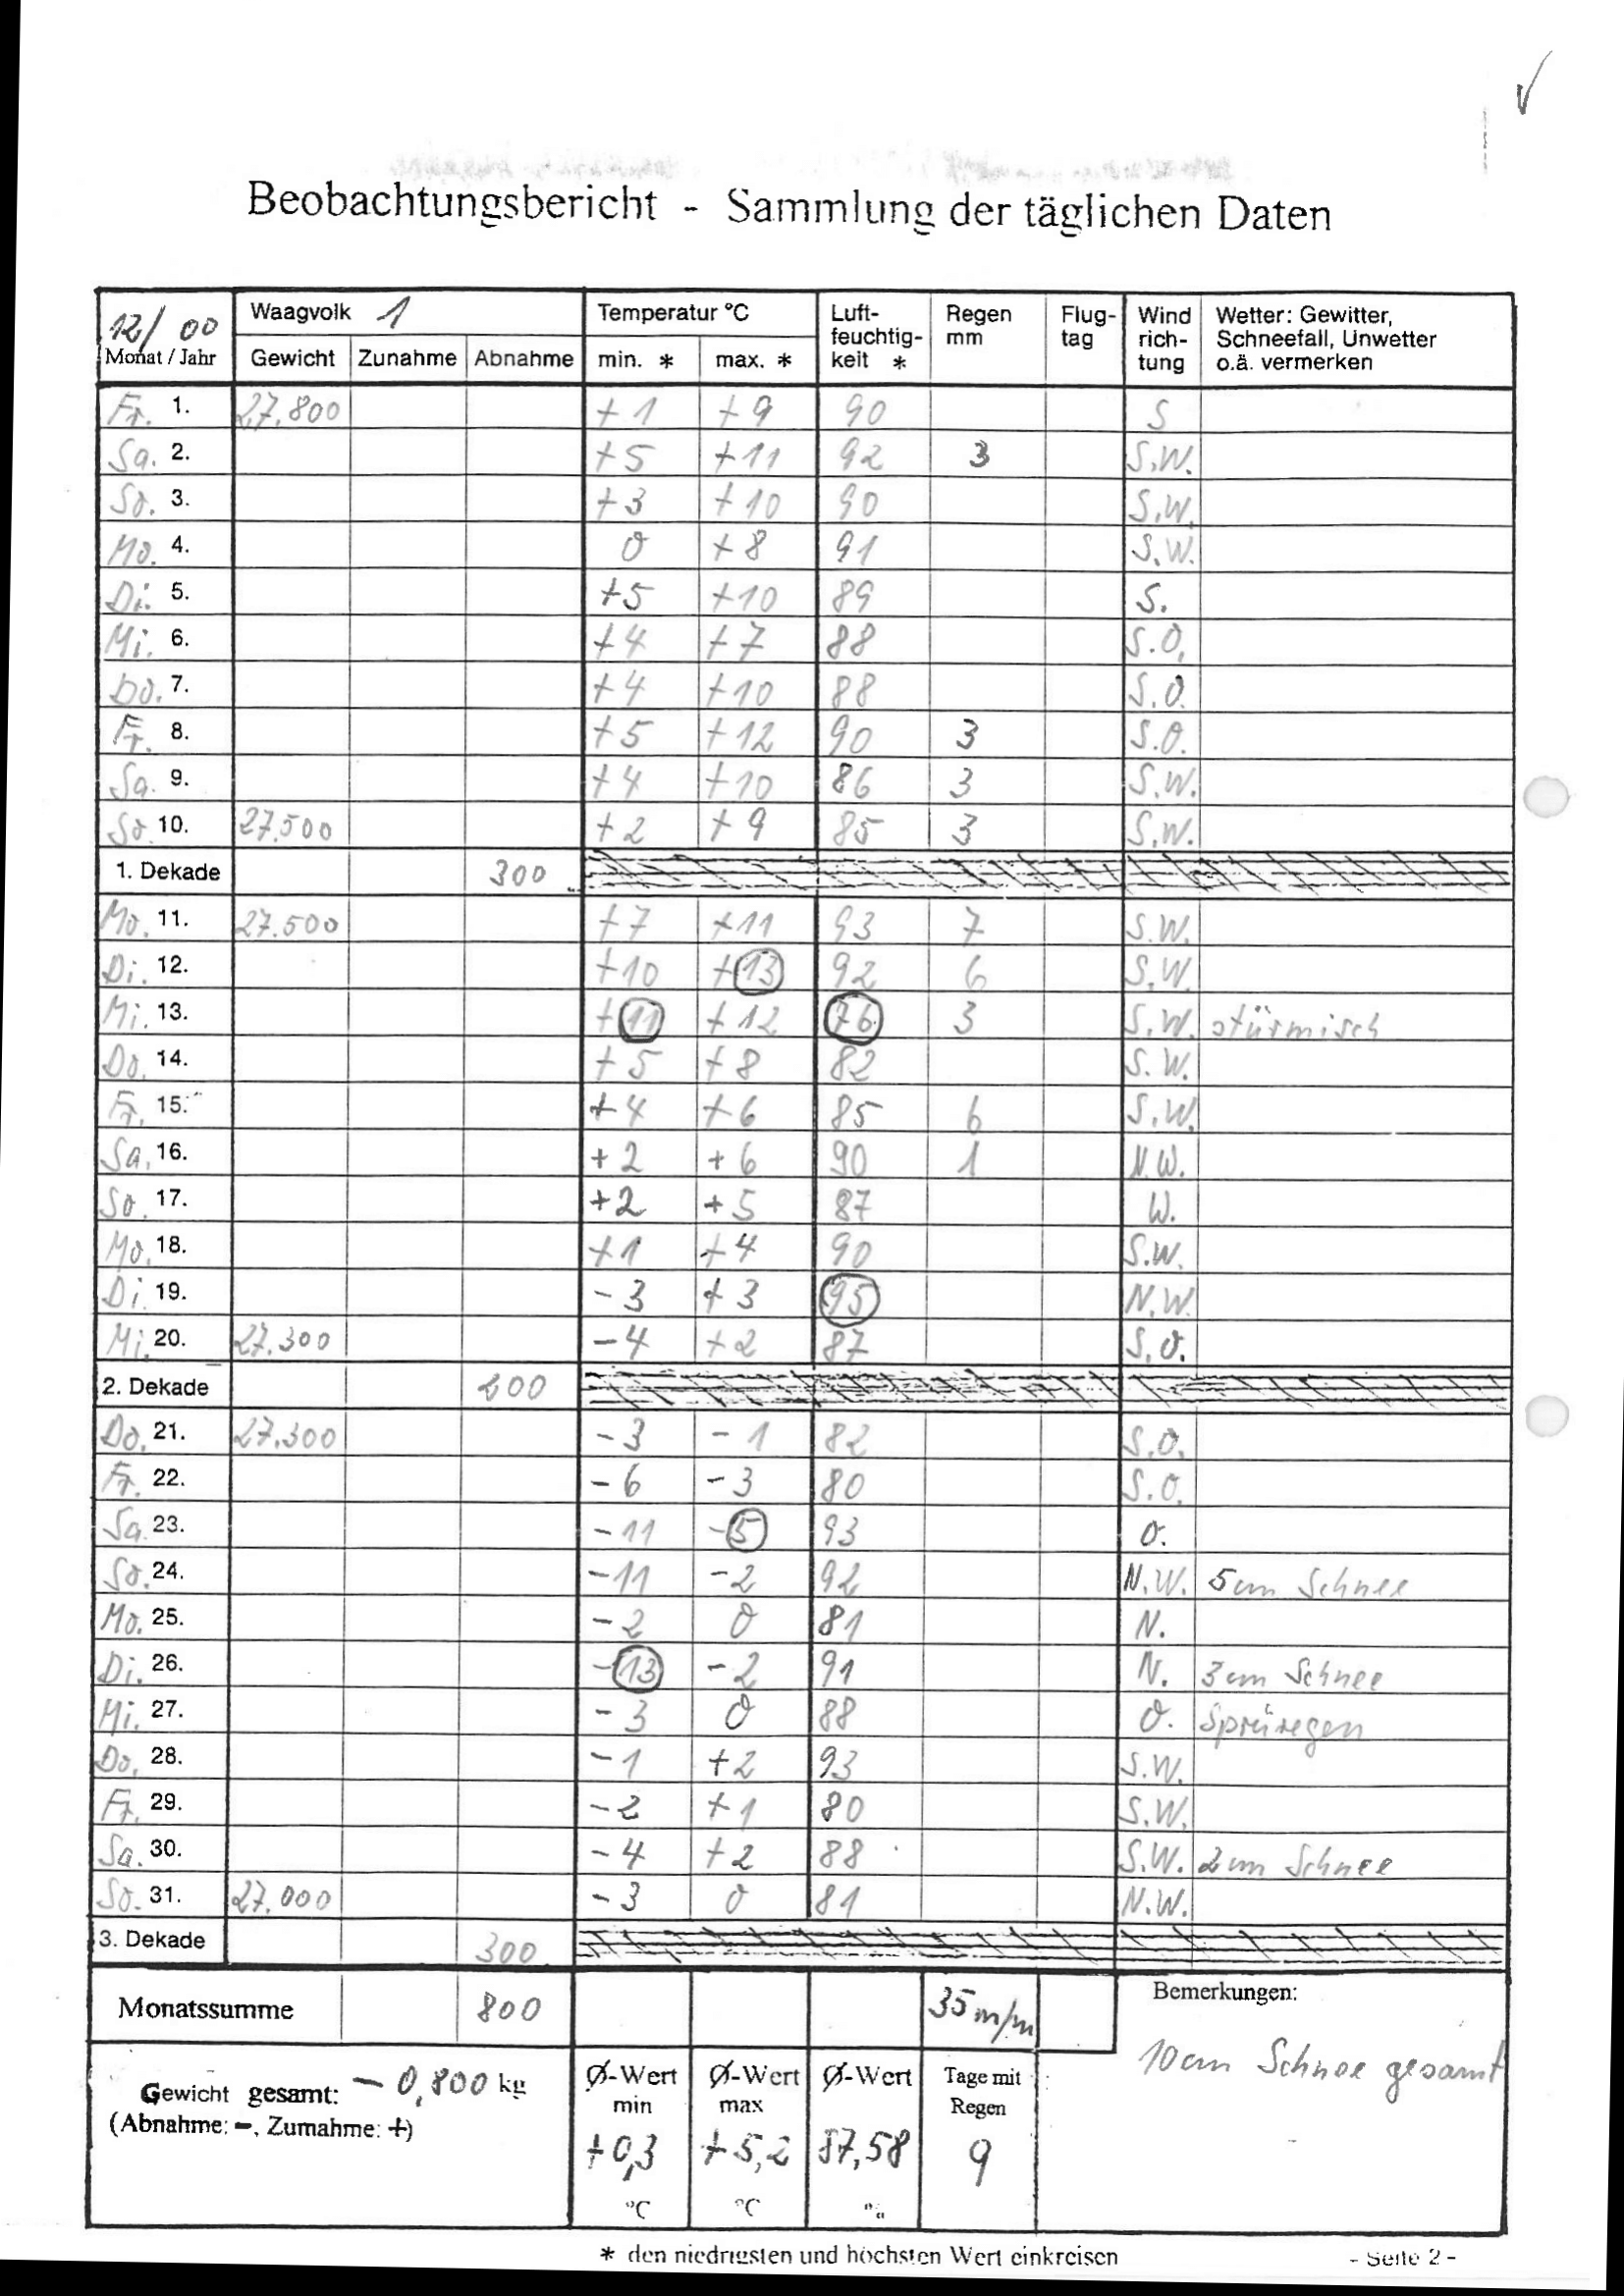 Beobachtungsbericht - Sammlung der täglichen Daten
12/00 Monat / Jahr | Waagvolk 1 | Temperatur °C | Luft-feuchtig-keit * | Regen mm | Flug-tag | Wind rich-tung | Wetter: Gewitter, Schneefall, Unwetter o.ä. vermerken
Gewicht | Zunahme | Abnahme | min. * | max. *
Fr. 1. 27.800 +1 +9 90 S
Sa. 2. +5 +11 92 3 S.W.
So. 3. +3 +10 90 S.W.
Mo. 4. 0 +8 91 S.W.
Di. 5. +5 +10 89 S.
Mi. 6. +4 +7 88 S.O.
Do. 7. +4 +10 88 S.O.
Fr. 8. +5 +12 90 3 S.O.
Sa. 9. +4 +10 86 3 S.W.
So. 10. 27.500 +2 +9 85 3 S.W.
1. Dekade 300
Mo. 11. 27.500 +7 +11 93 7 S.W.
Di. 12. +10 +13 92 6 S.W.
Mi. 13. +11 +12 76 3 S.W. stürmisch
Do. 14. +5 +8 82 S.W.
Fr. 15. +4 +6 85 6 S.W.
Sa. 16. +2 +6 90 1 N.W.
So. 17. +2 +5 87 W.
Mo. 18. +1 +4 90 S.W.
Di. 19. -3 +3 95 N.W.
Mi. 20. 27.300 -4 +2 87 S.O.
2. Dekade 200
Do. 21. 27.300 -3 -1 82 S.O.
Fr. 22. -6 -3 80 S.O.
Sa. 23. -11 -5 93 O.
So. 24. -11 -2 92 N.W. 5cm Schnee
Mo. 25. -2 0 81 N.
Di. 26. -13 -2 91 N. 3cm Schnee
Mi. 27. -3 0 88 O. Spreiregen
Do. 28. -1 +2 93 S.W.
Fr. 29. -2 +1 80 S.W.
Sa. 30. -4 +2 88 S.W. 2cm Schnee
So. 31. 27.000 -3 0 81 N.W.
3. Dekade 300
Monatssumme 800 35 m/m Bemerkungen:
10cm Schnee gesamt
Gewicht gesamt: - 0,800 kg
(Abnahme: -, Zumahme: +)
Ø-Wert min +0,3 °C
Ø-Wert max +5,2 °C
Ø-Wert 87,58 %
Tage mit Regen 9
* den niedrigsten und höchsten Wert einkreisen
- Seite 2 -